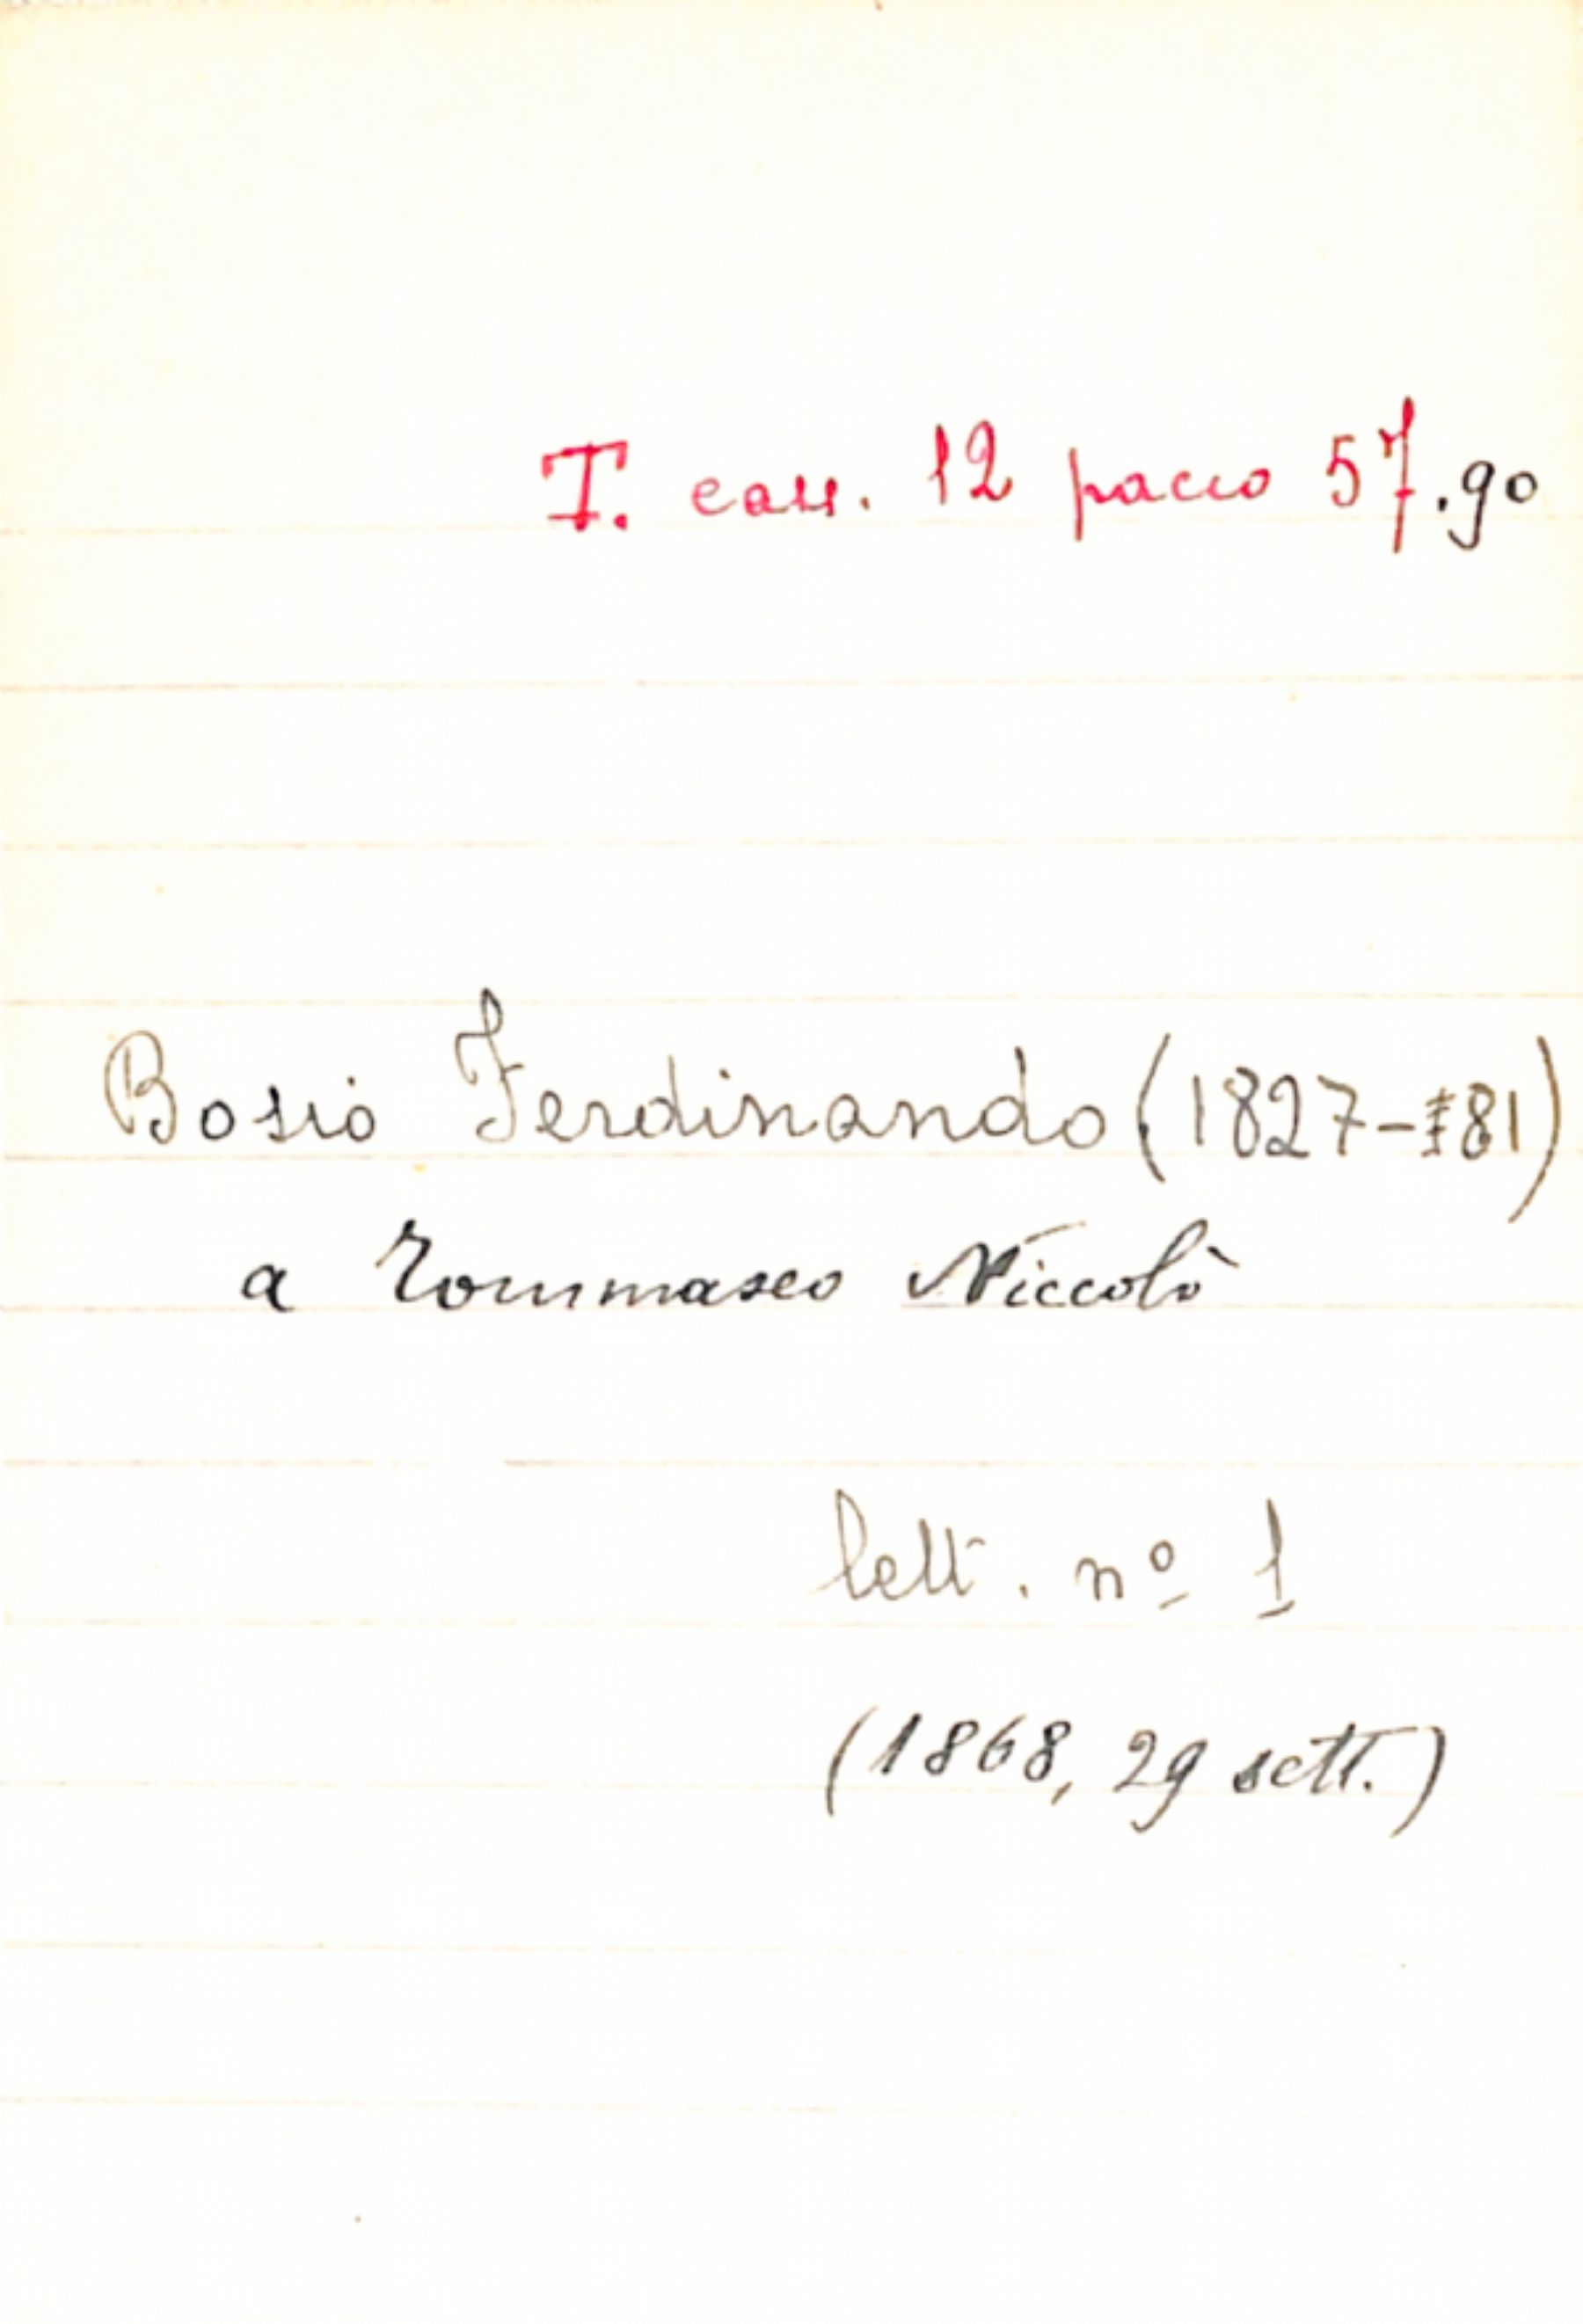 T. cass. 12 pacco 57.90
Bosio Ferdinando (1827-81)
a Tommaseo Niccolò
lett. nº 1
(1868, 29 sett.)